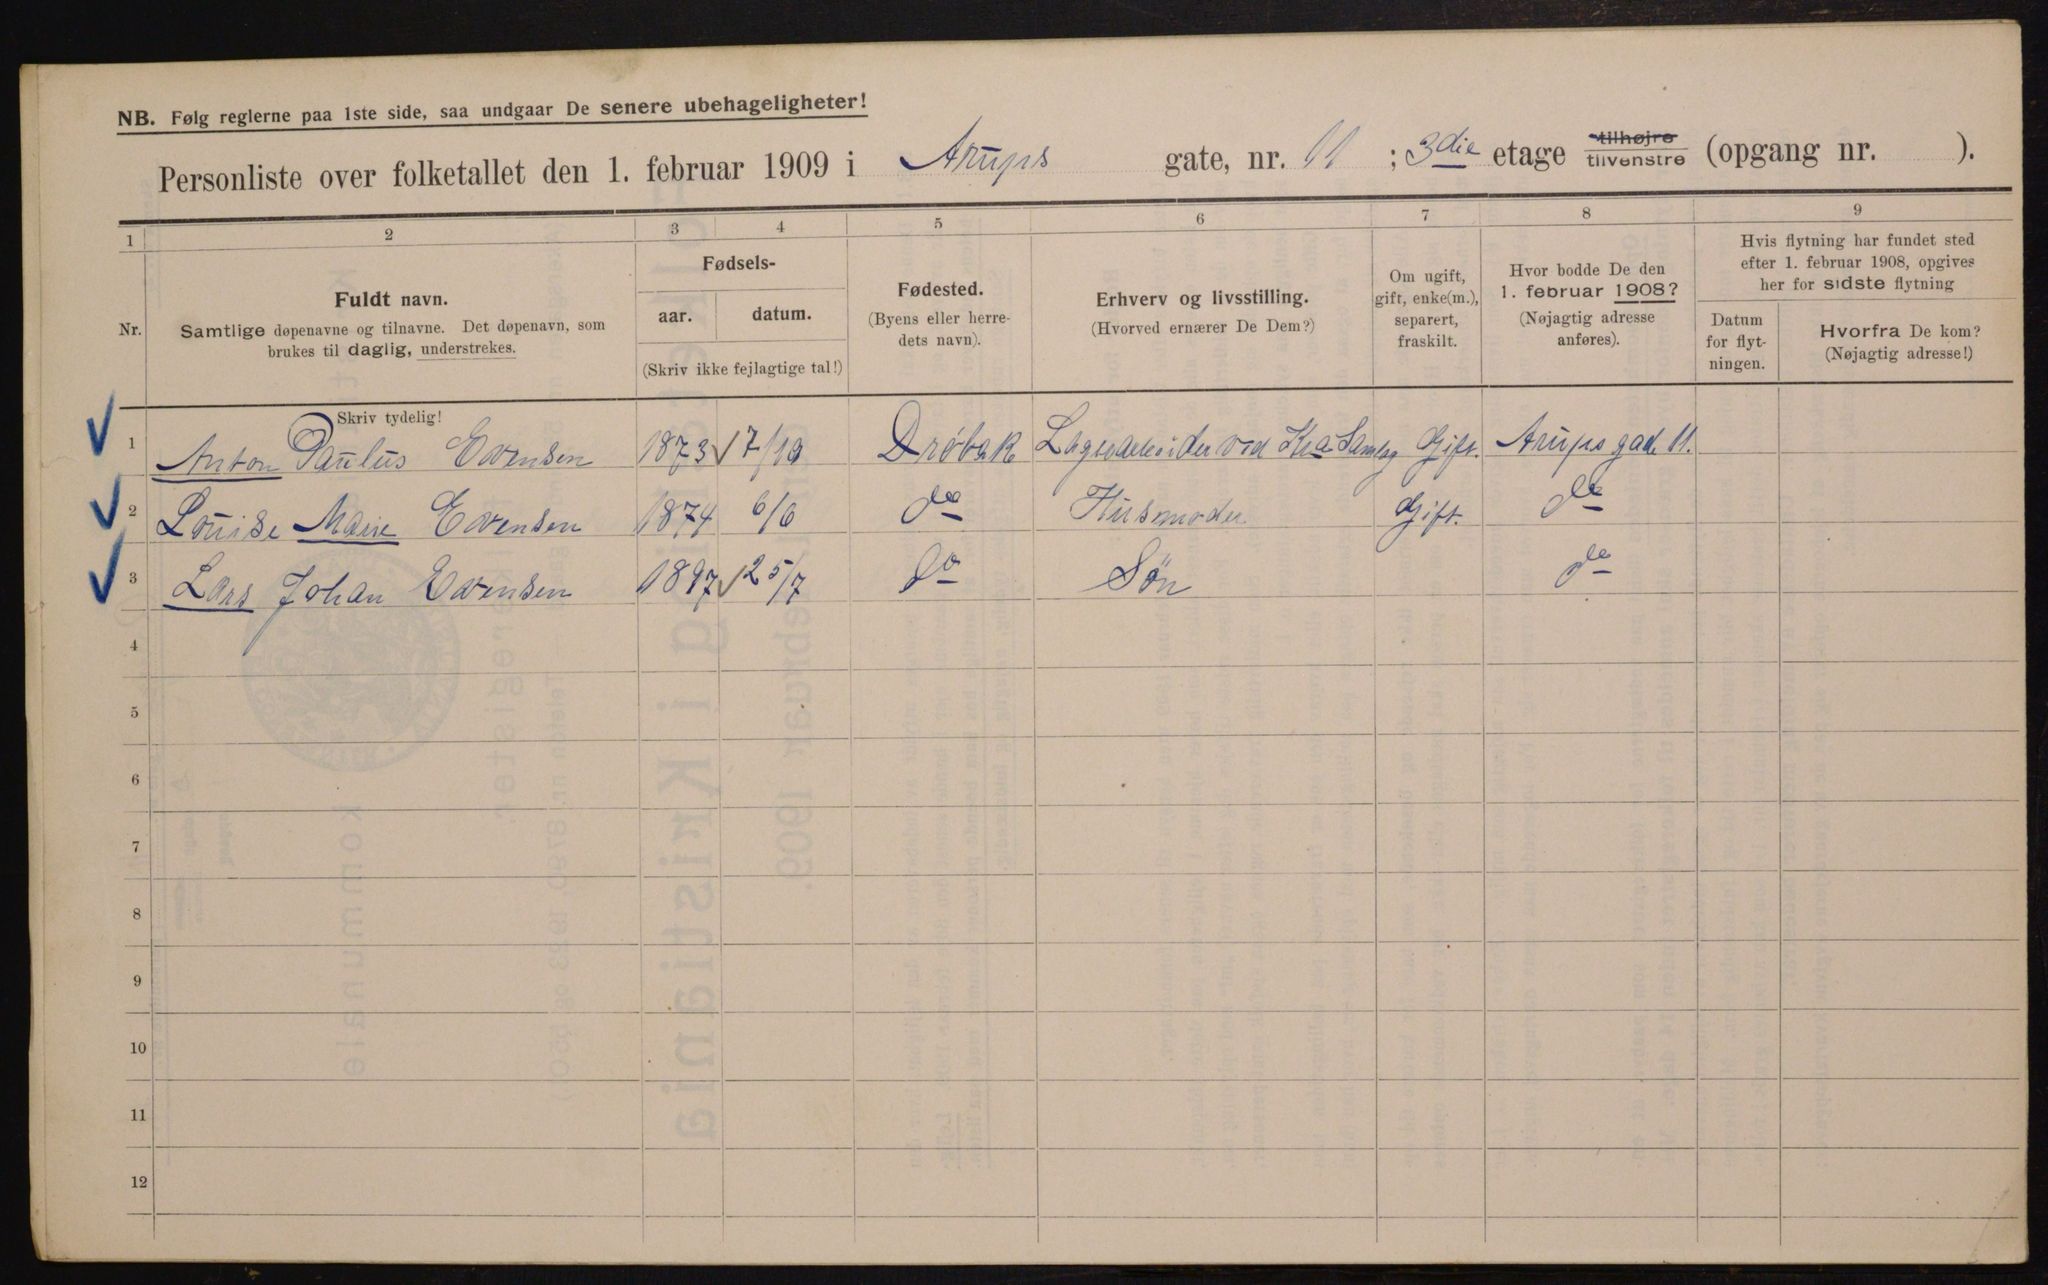 NB. Følg reglerne paa 1ste side, saa undgaar De senere ubehageligheter!
Personliste over folketallet den 1. februar 1909 i Arups gate, nr. 11 ; 3die etage tilhøjre tilvenstre (opgang nr. ).
1 2 3 4 5 6 7 8 9
Nr.
Fuldt navn.
Samtlige døpenavne og tilnavne. Det døpenavn, som
brukes til daglig, understrekes.
Fødsels-
aar. datum.
(Skriv ikke fejlagtige tal!)
Fødested.
(Byens eller herre-
dets navn).
Erhverv og livsstilling.
(Hvorved ernærer De Dem?)
Om ugift,
gift, enke(m.),
separert,
fraskilt.
Hvor bodde De den
1. februar 1908?
(Nøjagtig adresse
anføres).
Hvis flytning har fundet sted
efter 1. februar 1908, opgives
her for sidste flytning
Datum
for flyt-
ningen.
Hvorfra De kom?
(Nøjagtig adresse!)
Skriv tydelig!
1 Anton Paulus Evensen 1873 17/10 Drøbak Gift. Arups gade 11.
2 Louise Marie Evensen 1874 6/6 do Husmoder Gift. do
3 Lars Johan Evensen 1897 25/7 do Søn do
4
5
6
7
8
9
10
11
12